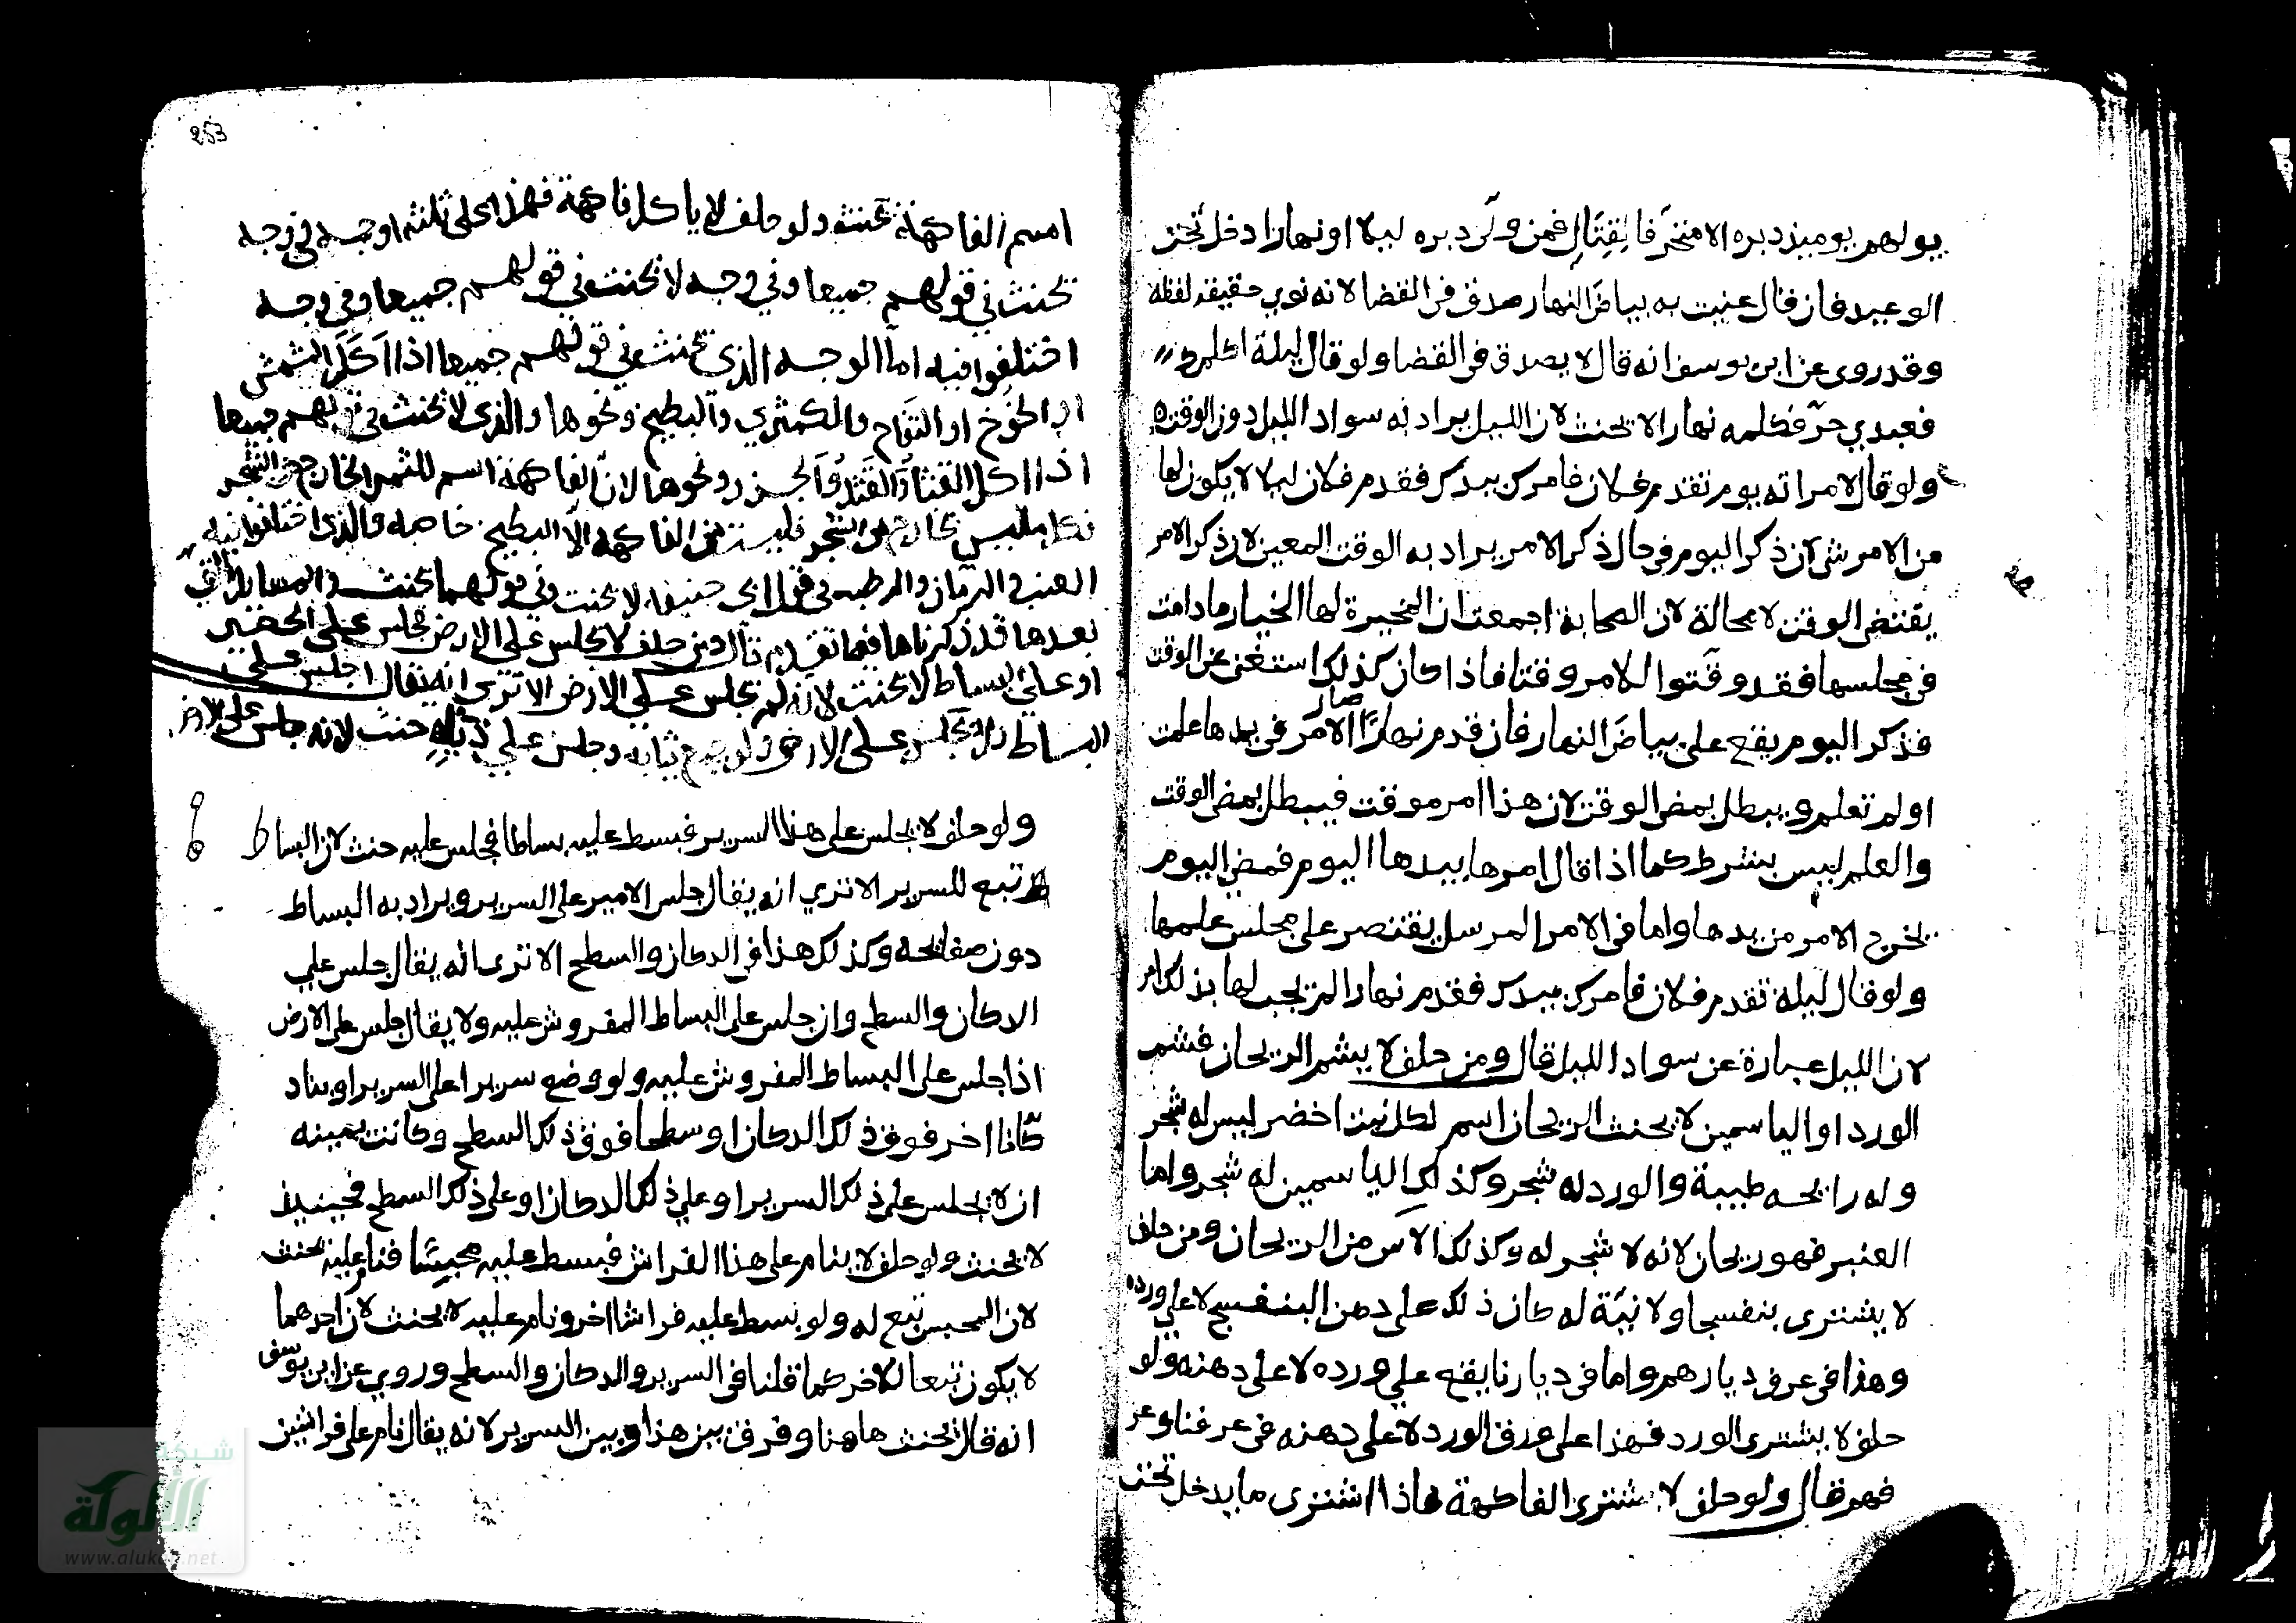 يولهم يوميذ دبره الا متحرفا لقتال فمن ولى دبره ليلا او نهارا دخل تحت
الوعيد فان قال عنيت به بياض النهار صدق في القضا لانه نوي حقيقة لفظه
وقد روى عن ابى يوسف انه قال لا يصدق في القضا ولو قال ليلة اكلمك
فعبدي حر فكلمه نهارا لا يحنث لان الليل يراد به سواد الليل دون الوقت
ولو قال لامراته يوم تقدم فلان فامرك بيدك فقدم فلان ليلا لا يكون لها
من الامر شى لان ذكر اليوم في حال ذكر الامر يراد به الوقت المعين لان ذكر الامر
يقتضى الوقت لا محالة لان الصحابة اجمعت ان المخيرة لها الخيار ما دامت
في مجلسها فقد وقتوا للامر وقتا فاذا كان كذلك استغنى عن الوقت
فذكر اليوم يقع على بياض النهار فان قدم نهارا صار الامر في يدها علمت
او لم تعلم ويبطل بمضى الوقت لان هذا امر موقت فيبطل بمضى الوقت
والعلم ليس بشرط كما اذا قال امرها بيدها اليوم فمضى اليوم
يخرج الامر من يدها واما في الامر المرسل يقتصر على مجلس علمها
ولو قال ليلة تقدم فلان فامرك بيدك فقدم نهارا لم يجب لها بذلك امر
لان الليل عبارة عن سواد الليل قال ومن حلف لا يشم الريحان فشم
الورد او الياسمين لا يحنث الريحان اسم لكل نبت اخضر ليس له شجر
وله رايحه طيبة والورد له شجر وكذلك الياسمين له شجر واما
العنبر فهو ريحان لانه لا شجر له وكذلك الاس من الريحان ومن حلف
لا يشترى بنفسجا ولا نية له كان ذلك على دهن البنفسج لا على ورده
وهذا في عرف ديارهم واما في ديارنا يقع علي ورده لا على دهنه ولو
حلف لا يشترى الورد فهذا على ورق الورد لا على دهنه في عرفنا وعر
فهم قال ولو حلف لا يشترى الفاكهة فاذا اشترى ما يدخل تحت
253
اسم الفاكهة يحنث ولو حلف لا ياكل فاكهة فهذا على ثلثة اوجه في وجه
يحنث في قولهم جميعا وفي وجه لا يحنث في قولهم جميعا وفي وجه
اختلفوا فيه اما الوجه الذى يحنث في قولهم جميعا اذا اكل المشمش
او الخوخ او التفاح والكمثرى والبطيخ ونحوها والذى لا يحنث في قولهم جميعا
اذا اكل القثا والقثد والجزر ونحوها لان الفاكهة اسم للثمر الخارج من الشجر
فكلما ليس بخارج من الشجر فليست من الفاكهة الا البطيخ خاصه والذى اختلفوا فيه
العنب والرمان والرطب في قول ابى حنيفه لا يحنث وفي قولهما يحنث والمسايل التي
بعدها قد ذكرناها فيما تقدم قال ومن حلف لا يجلس على الارض فجلس على الحصير
او على البساط لا يحنث لانه لم يجلس على الارض الا ترى انه يقال اجلس على
البساط ولا تجلس على الارض ولو وضع ثيابه وجلس على ذيله حنث لانه جلس على الارض
ولو حلف لا يجلس على هذا السرير فبسط عليه بساطا فجلس عليه حنث لان البساط
تبع للسرير الا تري انه يقال جلس الامير على السرير ويراد به البساط
دون صفايحه وكذلك هذا في الدكان والسطح الا ترى انه يقال جلس علي
الدكان والسطح وان جلس على البساط المفروش عليه ولا يقال جلس على الارض
اذا جلس على البساط المفروش عليه ولو وضع سريرا على السرير او بنا د
كانا اخر فوق ذلك الدكان او سطحا فوق ذلك السطح وكانت يمينه
ان لا يجلس على ذلك السرير او علي ذلك الدكان او على ذلك السطح فحينيذ
لا يحنث ولو حلف لا ينام على هذا الفراش فبسط عليه محبسا فنام عليه يحنث
لان المحبس تبع له ولو بسط عليه فراشا اخر ونام عليه لا يحنث لان احدهما
لا يكون تبعا للاخر كما قلنا في السرير والدكان والسطح وروي عن ابى يوسف
انه قال يحنث هاهنا وفرق بين هذا وبين السرير لانه يقال نام على فراشين
شبكة
الألوكة
www.alukah.net